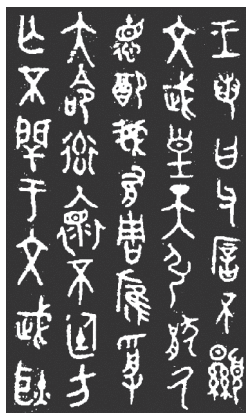 王若曰父厝不顯
文武皇天引猒氒
德配我有周雁受
大命率褱不廷方
亡不閈于文武耿